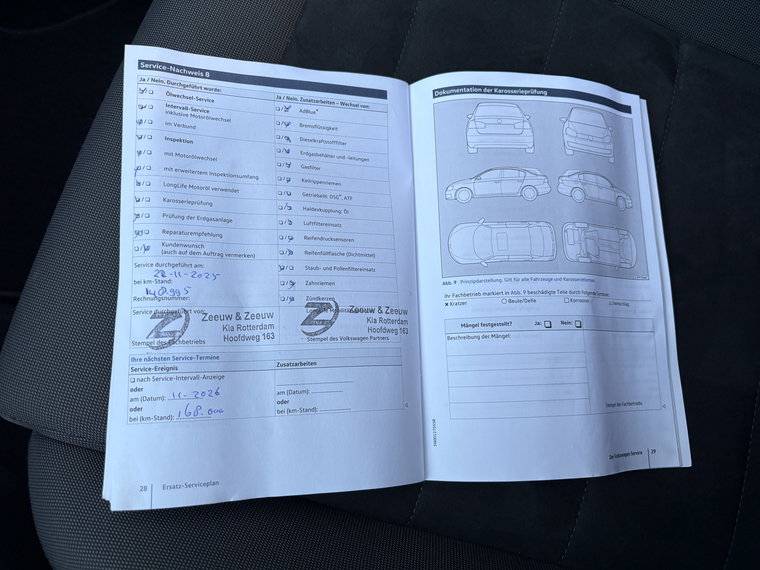 Service-Nachweis 8
Ja / Nein. Durchgeführt wurde:
Ölwechsel-Service
Intervall-Service
inklusive Motorölwechsel
im Verbund
Inspektion
mit Motorölwechsel
mit erweitertem Inspektionsumfang
LongLife Motoröl verwendet
Karosserieprüfung
Prüfung der Erdgasanlage
Reparaturempfehlung
Kundenwunsch
(auch auf dem Auftrag vermerken)
Service durchgeführt am:
28-11-2025
bei km-Stand:
148.995
Rechnungsnummer:
Service durchgeführt von:
Zeeuw & Zeeuw
Kia Rotterdam
Hoofdweg 163
Stempel des Fachbetriebs
Ja / Nein. Zusatzarbeiten – Wechsel von:
AdBlue®
Bremsflüssigkeit
Dieselkraftstofffilter
Erdgasbehälter und -leitungen
Gasfilter
Keilrippenriemen
Getriebeöl: DSG®, ATF
Haldexkupplung: Öl
Luftfiltereinsatz
Reifendrucksensoren
Reifenfüllflasche (Dichtmittel)
Staub- und Pollenfiltereinsatz
Zahnriemen
Zündkerzen
Zeeuw & Zeeuw
Kia Rotterdam
Hoofdweg 163
Stempel des Volkswagen Partners
Ihre nächsten Service-Termine
Service-Ereignis
Zusatzarbeiten
nach Service-Intervall-Anzeige
oder
am (Datum): 11-2026
oder
bei (km-Stand): 168.000
am (Datum):
oder
bei (km-Stand):
28
Ersatz-Serviceplan
Dokumentation der Karosserieprüfung
Abb. 9 Prinzipdarstellung. Gilt für alle Fahrzeuge und Karosserieformen.
Ihr Fachbetrieb markiert in Abb. 9 beschädigte Teile durch folgende Symbole:
Kratzer
Beule/Delle
Korrosion
Steinschlag
Mängel festgestellt?
Ja:
Nein:
Beschreibung der Mängel:
Stempel des Fachbetriebs
Der Volkswagen Service
29